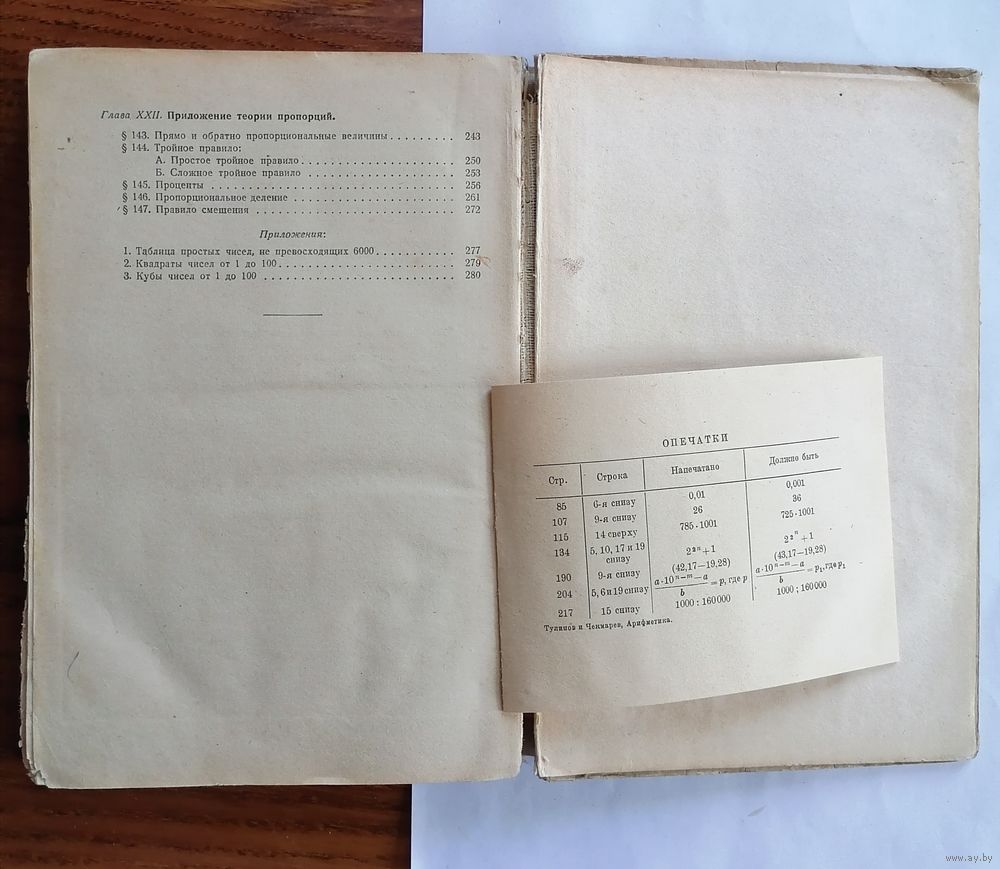 Глава XXII. Приложение теории пропорций.
§ 143. Прямо и обратно пропорциональные величины . . . . . . . . . 243
§ 144. Тройное правило:
А. Простое тройное правило . . . . . . . . . . . . . . . . . . . . . 250
Б. Сложное тройное правило . . . . . . . . . . . . . . . . . . . . 253
§ 145. Проценты . . . . . . . . . . . . . . . . . . . . . . . . . . . . . . . . . 256
§ 146. Пропорциональное деление . . . . . . . . . . . . . . . . . . . . . . 261
§ 147. Правило смешения . . . . . . . . . . . . . . . . . . . . . . . . . . . 272
Приложения:
1. Таблица простых чисел, не превосходящих 6000 . . . . . . . . . . . 277
2. Квадраты чисел от 1 до 100 . . . . . . . . . . . . . . . . . . . . . . . . 279
3. Кубы чисел от 1 до 100 . . . . . . . . . . . . . . . . . . . . . . . . . . 280
ОПЕЧАТКИ
Стр. Строка Напечатано Должно быть
85 6-я снизу 0,01 0,001
107 9-я снизу 26 36
115 14 сверху 785·1001 725·1001
134 5, 10, 17 и 19 снизу 2²ⁿ+1 2^2^n+1
190 9-я снизу (42,17—19,28) (43,17—19,28)
204 5, 6 и 19 снизу a·10ⁿ⁻ᵐ—a / b = p, где p a·10ⁿ⁻ᵐ—a / b = p₁, где p₁
217 15 снизу 1000 : 160000 1000 ; 160000
Тулинов и Чекмарев, Арифметика.
www.ay.by